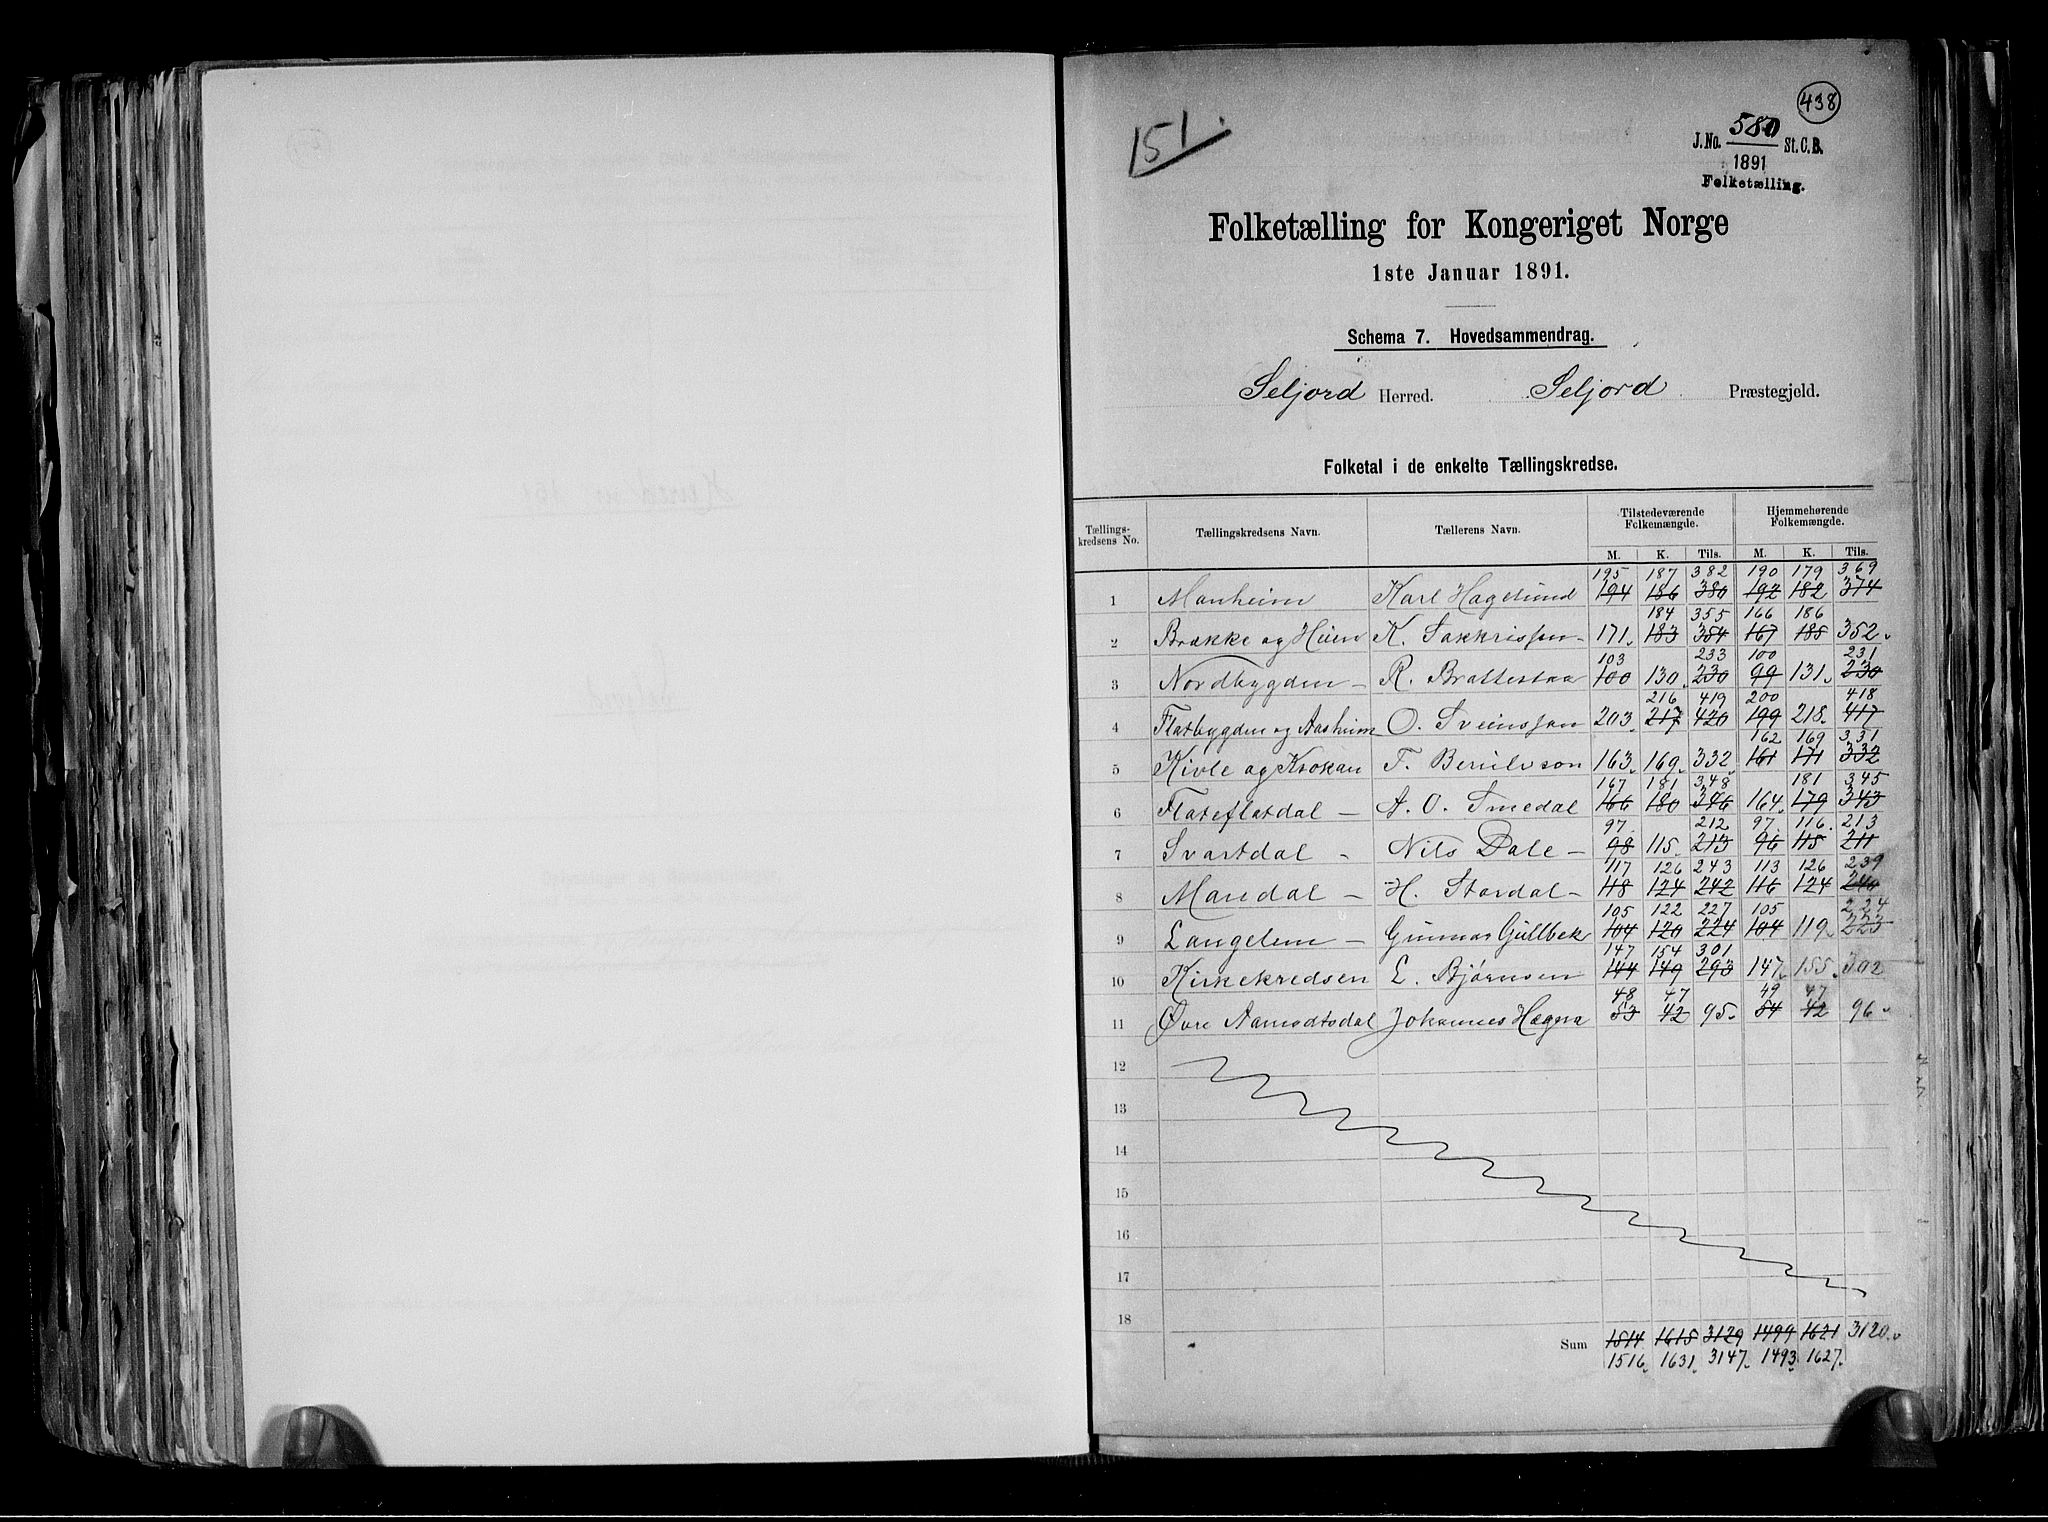 438
151.
J. No. 580 St. C. B.
1891
Folketælling.
Folketælling for Kongeriget Norge
1ste Januar 1891.
Schema 7. Hovedsammendrag.
Seljord Herred. Seljord Præstegjeld.
Folketal i de enkelte Tællingskredse.
Tællings-kredsens No. Tællingskredsens Navn. Tællerens Navn. Tilstedeværende Folkemængde. Hjemmehørende Folkemængde.
M. K. Tils. M. K. Tils.
195 187 382 190 179 369
1 Manheim Karl Hagelund 194 186 380 192 182 374
184 355 166 186
2 Brække og Heien K. Sakkrisson 171. 183 354 167 185 352.
103 233 100 231
3 Nordbygden – R. Brattestaa 100 130. 230 99 131. 230
216 419 200 418
4 Flatbygden og Aasheim O. Sveinsson 203. 217 420 199 218. 417
162 169 331
5 Kivle og Krokan T. Berulvson 163. 169. 332. 161 171 332
167 181 348 181 345
6 Flateflatdal – A. O. Smedal 166 180 346 164. 179 343
97. 212 97. 116. 213
7 Svartdal – Nils Dale – 98 115. 213 96 115 211
117 126 243 113 126 239
8 Manedal – H. Stordal – 118 124 242 116 124 240
105 122 227 105 224
9 Langelem – Gunnar Gullbek 104 120 224 104 119. 223
147 154 301
10 Kirkekredsen E. Bjørnsen 144 149 293 147. 155. 302
48 47 49 47
11 Øvre Aamodtsdal Johannes Hegna 53 42 95. 54 42 96.
12
13
14
15
16
17
18
Sum 1514 1615 3129 1499 1621 3120.
1516. 1631. 3147. 1493. 1627.